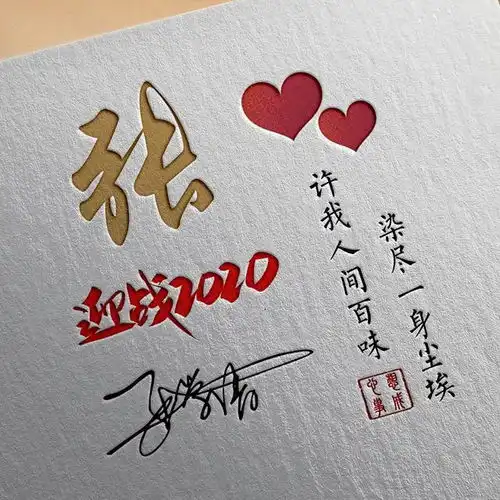 张
迎战2020
染尽一身尘埃
许我人间百味
心想事成